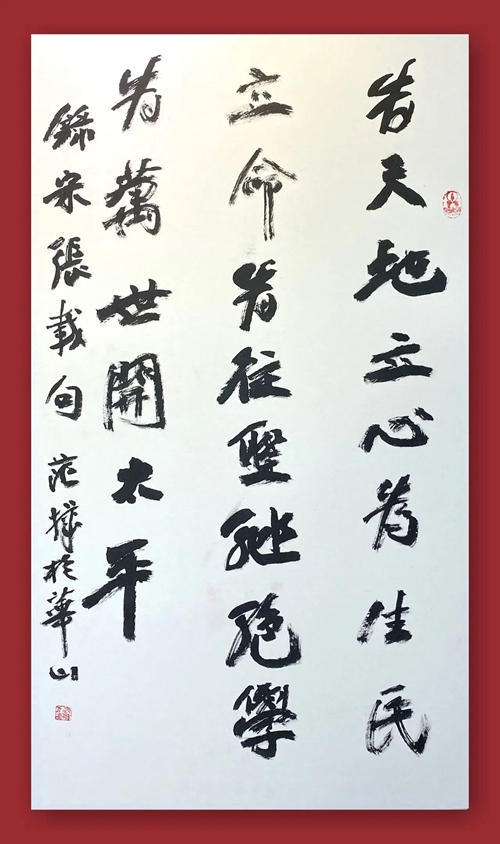 為天地立心為生民
立命為往聖繼絕學
為萬世開太平
錄宋張載句 范樣於華山